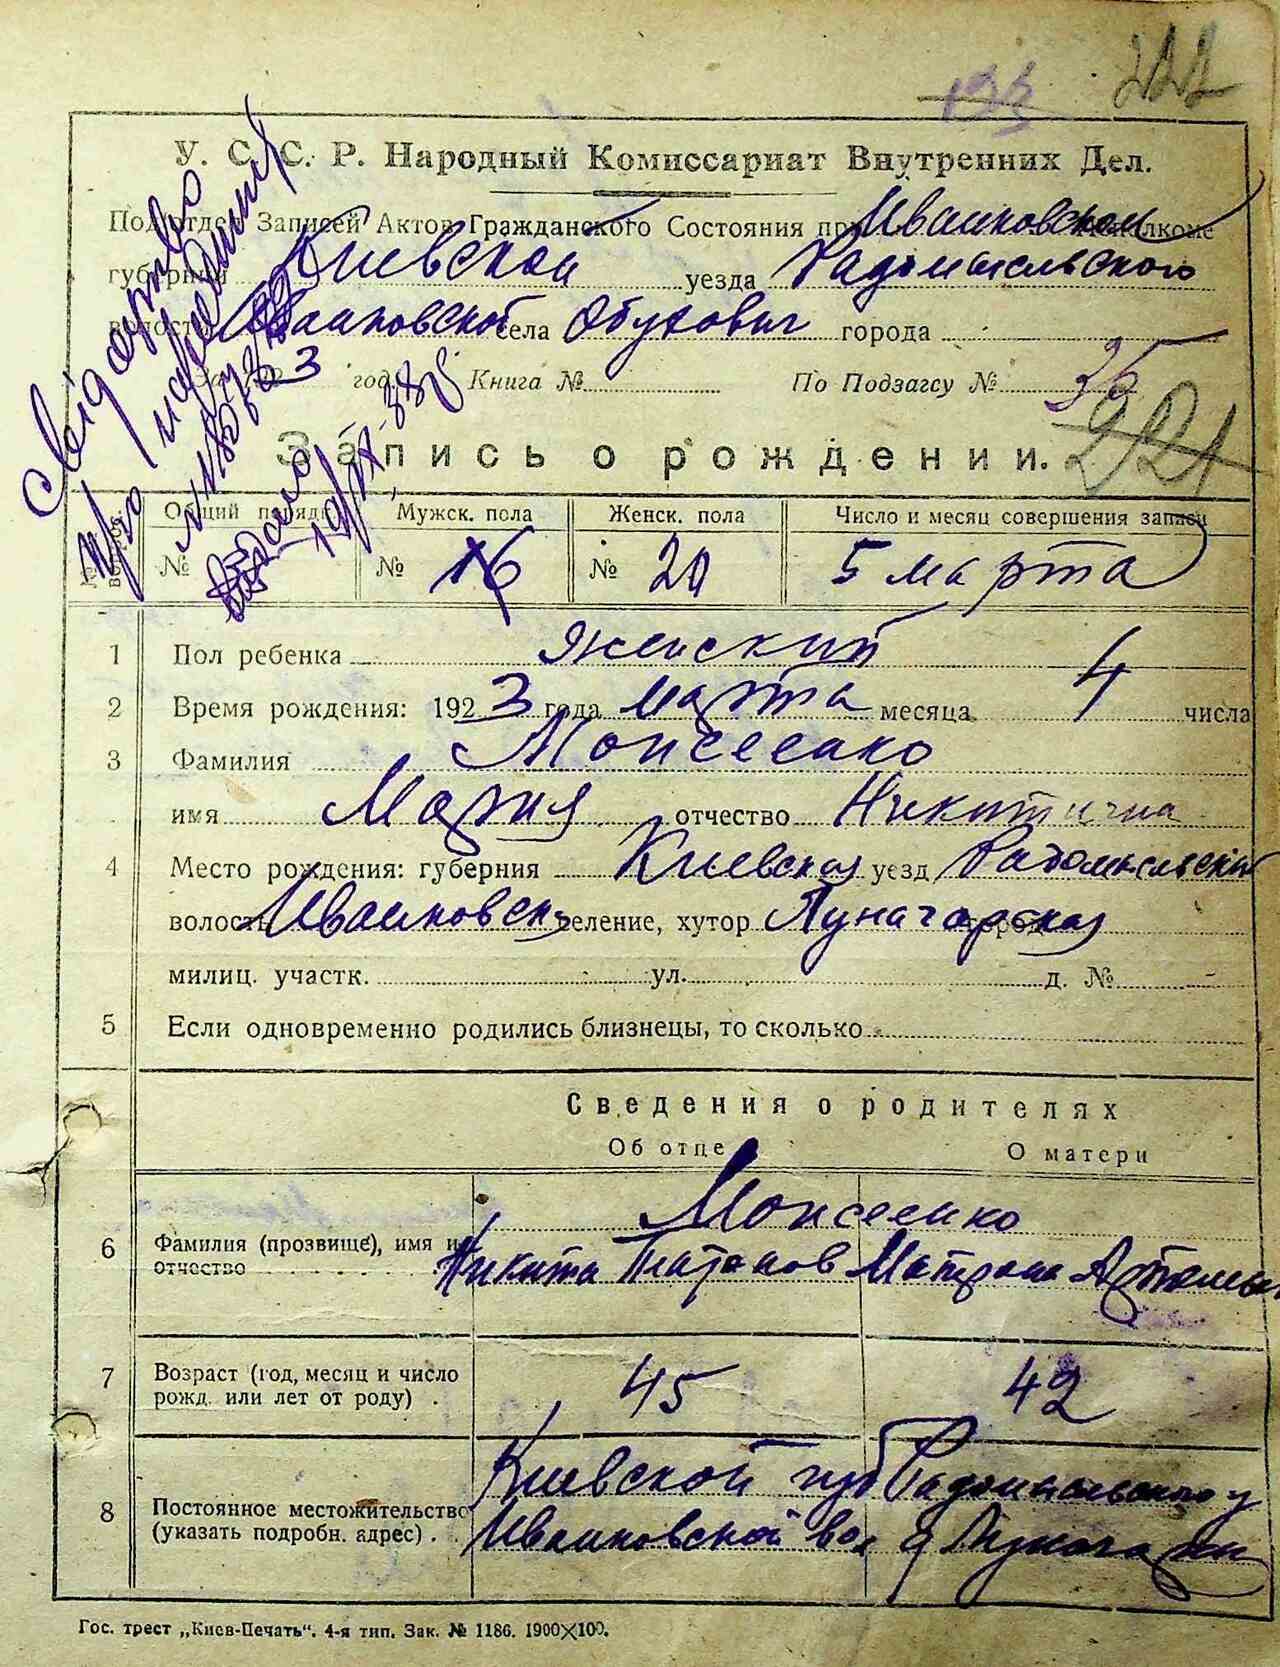 133 222
У. С. С. Р. Народный Комиссариат Внутренних Дел.
Под'отдел Записей Актов Гражданского Состояния при Иванковском
губернии Киевской уезда Радомысльского
волости Иванковской села Обуховичи города
За 1923 год. Книга № По Подзагсу № 35
Запись о рождении. 221
Свідоцтво
п/о народження
Видано
Общий порядк. Мужск. пола Женск. пола Число и месяц совершения записи
№ № 16 № 20 5 марта
1 Пол ребенка Женский
2 Время рождения: 1923 года марта месяца 4 числа
3 Фамилия Моисеенко
имя Мария отчество Никитична
4 Место рождения: губерния Киевская уезд Радомысльский
волость Иванковск. селение, хутор
милиц. участк. ул. д. №
5 Если одновременно родились близнецы, то сколько
Сведения о родителях
Об отце О матери
Моисеенко
6 Фамилия (прозвище), имя и отчество Никита Платонов Матрона
7 Возраст (год, месяц и число рожд. или лет от роду) 45 42
8 Постоянное местожительство (указать подробн. адрес) Киевской губ Радомысльского у
Иванковской вол
Гос. трест „Киев-Печать“. 4-я тип. Зак. № 1186. 1900×100.